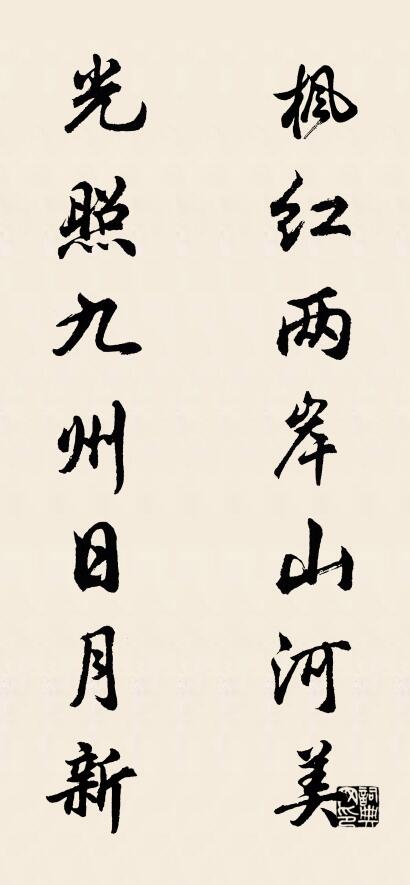 枫红两岸山河美
光照九州日月新